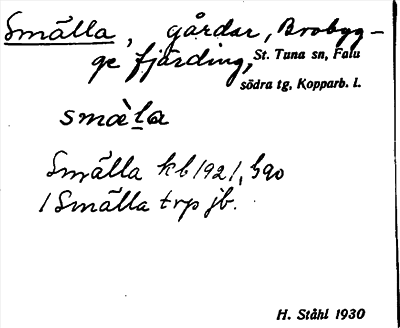 Smälla, gårdar, Brobyg-
ge fjärding, St. Tuna sn, Falu
södra tg, Kopparb. l.
smὰla
Smälla kb 1921, S90
1 Smälla trp jb.
H. Ståhl 1930